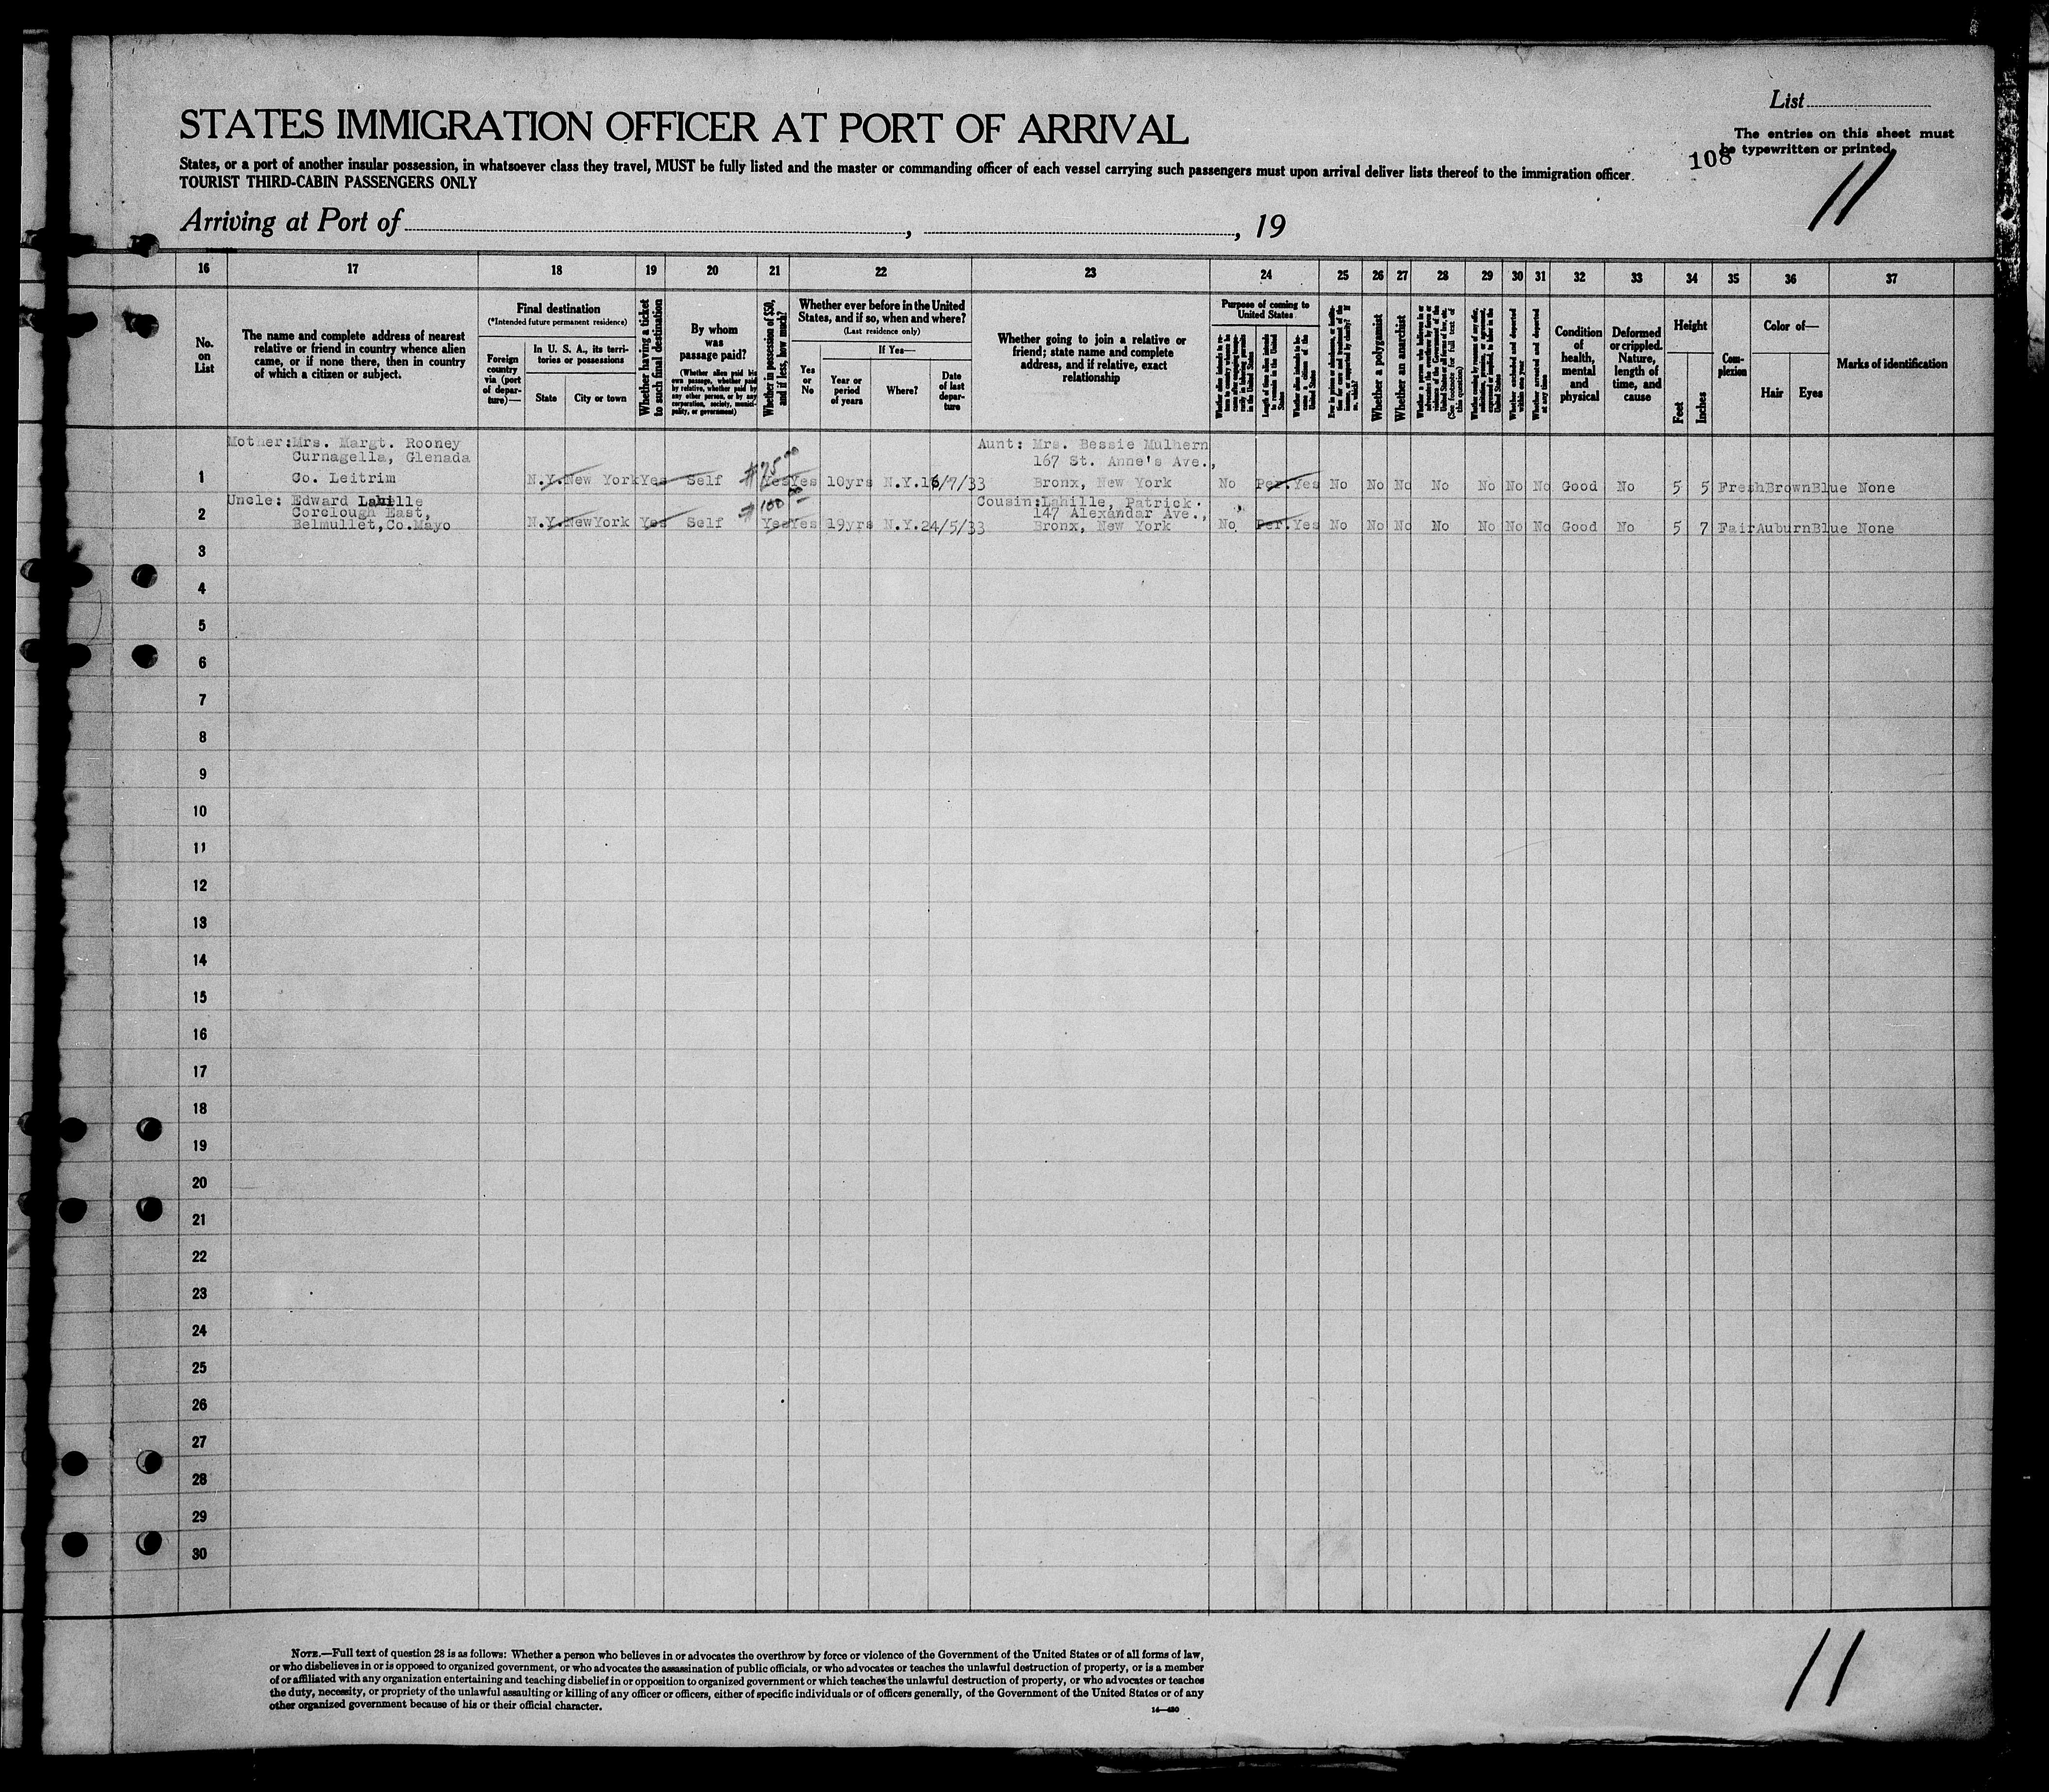 List
STATES IMMIGRATION OFFICER AT PORT OF ARRIVAL
The entries on this sheet must
be typewritten or printed.
108
11
States, or a port of another insular possession, in whatsoever class they travel, MUST be fully listed and the master or commanding officer of each vessel carrying such passengers must upon arrival deliver lists thereof to the immigration officer.
TOURIST THIRD-CABIN PASSENGERS ONLY
Arriving at Port of , , 19
16 17 18 19 20 21 22 23 24 25 26 27 28 29 30 31 32 33 34 35 36 37
No.
on
List
The name and complete address of nearest
relative or friend in country whence alien
came, or if none there, then in country
of which a citizen or subject.
Final destination
(*Intended future permanent residence)
Foreign
country
via (port
of depar-
ture)—
In U. S. A., its terri-
tories or possessions
State City or town
Whether having a ticket
to such final destination
By whom
was
passage paid?
(Whether alien paid his
own passage, whether paid
by relative, whether paid by
any other person, or by any
corporation, society, munici-
pality, or government)
Whether in possession of $50,
and if less, how much?
Whether ever before in the United
States, and if so, when and where?
(Last residence only)
Yes
or
No
If Yes—
Year or
period
of years
Where?
Date
of last
depar-
ture
Whether going to join a relative or
friend; state name and complete
address, and if relative, exact
relationship
Purpose of coming to
United States
Whether a polygamist
Whether an anarchist
Whether arrested and deported
at any time
Condition
of
health,
mental
and
physical
Deformed
or crippled.
Nature,
length of
time, and
cause
Height
Feet Inches
Com-
plexion
Color of—
Hair Eyes
Marks of identification
Mother:Mrs. Margt. Rooney Aunt: Mrs. Bessie Mulhern
Curnagella, Glenada 167 St. Anne's Ave.,
$75.00
1 Co. Leitrim N.Y. New York Yes Self Yes Yes 10yrs N.Y. 16/7/33 Bronx, New York No Per. Yes No No No No No No No Good No 5 5 Fresh Brown Blue None
Uncle: Edward Lahille $100.00 Cousin:Lahille, Patrick.
2 Corclough East, 147 Alexandar Ave.,
Belmullet,Co.Mayo N.Y. NewYork Yes Self Yes Yes 19yrs N.Y. 24/5/33 Bronx, New York No Per. Yes No No No No No No No Good No 5 7 Fair Auburn Blue None
3
4
5
6
7
8
9
10
11
12
13
14
15
16
17
18
19
20
21
22
23
24
25
26
27
28
29
30
NOTE.—Full text of question 28 is as follows: Whether a person who believes in or advocates the overthrow by force or violence of the Government of the United States or of all forms of law,
or who disbelieves in or is opposed to organized government, or who advocates the assassination of public officials, or who advocates or teaches the unlawful destruction of property, or is a member
of or affiliated with any organization entertaining and teaching disbelief in or opposition to organized government or which teaches the unlawful destruction of property, or who advocates or teaches
the duty, necessity, or propriety of the unlawful assaulting or killing of any officer or officers, either of specific individuals or of officers generally, of the Government of the United States or of any
other organized government because of his or their official character.
11